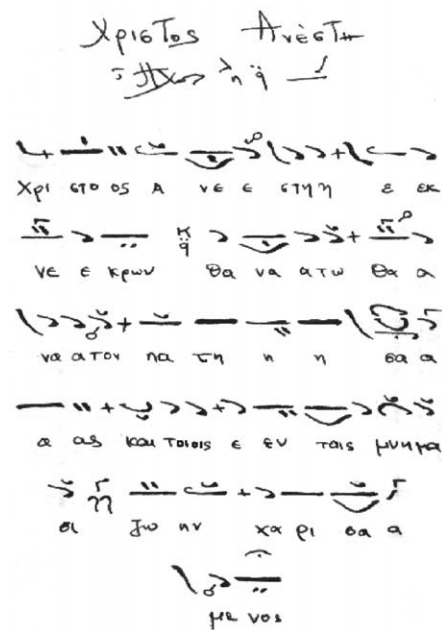 Χριστος Ανέστη
Χρι στο ος Α νε ε στη η ε εκ
νε ε κρων θα να α τω θα α
να α τον πα τη η η σα α
α ας και τοι οις ε εν ταις μνημα
σι ζω ην χα ρι σα α
με νος